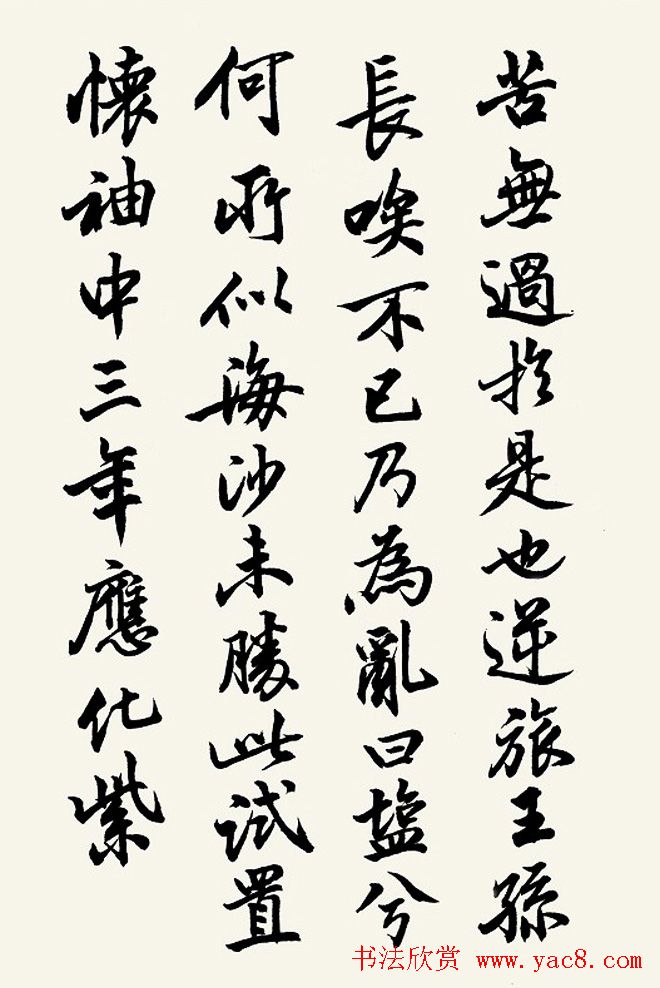 苦無過於是也逆旅王孫
長喚不已乃為亂曰塩兮
何所似海沙未勝此試置
懷袖中三年應化紫
书法欣赏 www.yac8.com